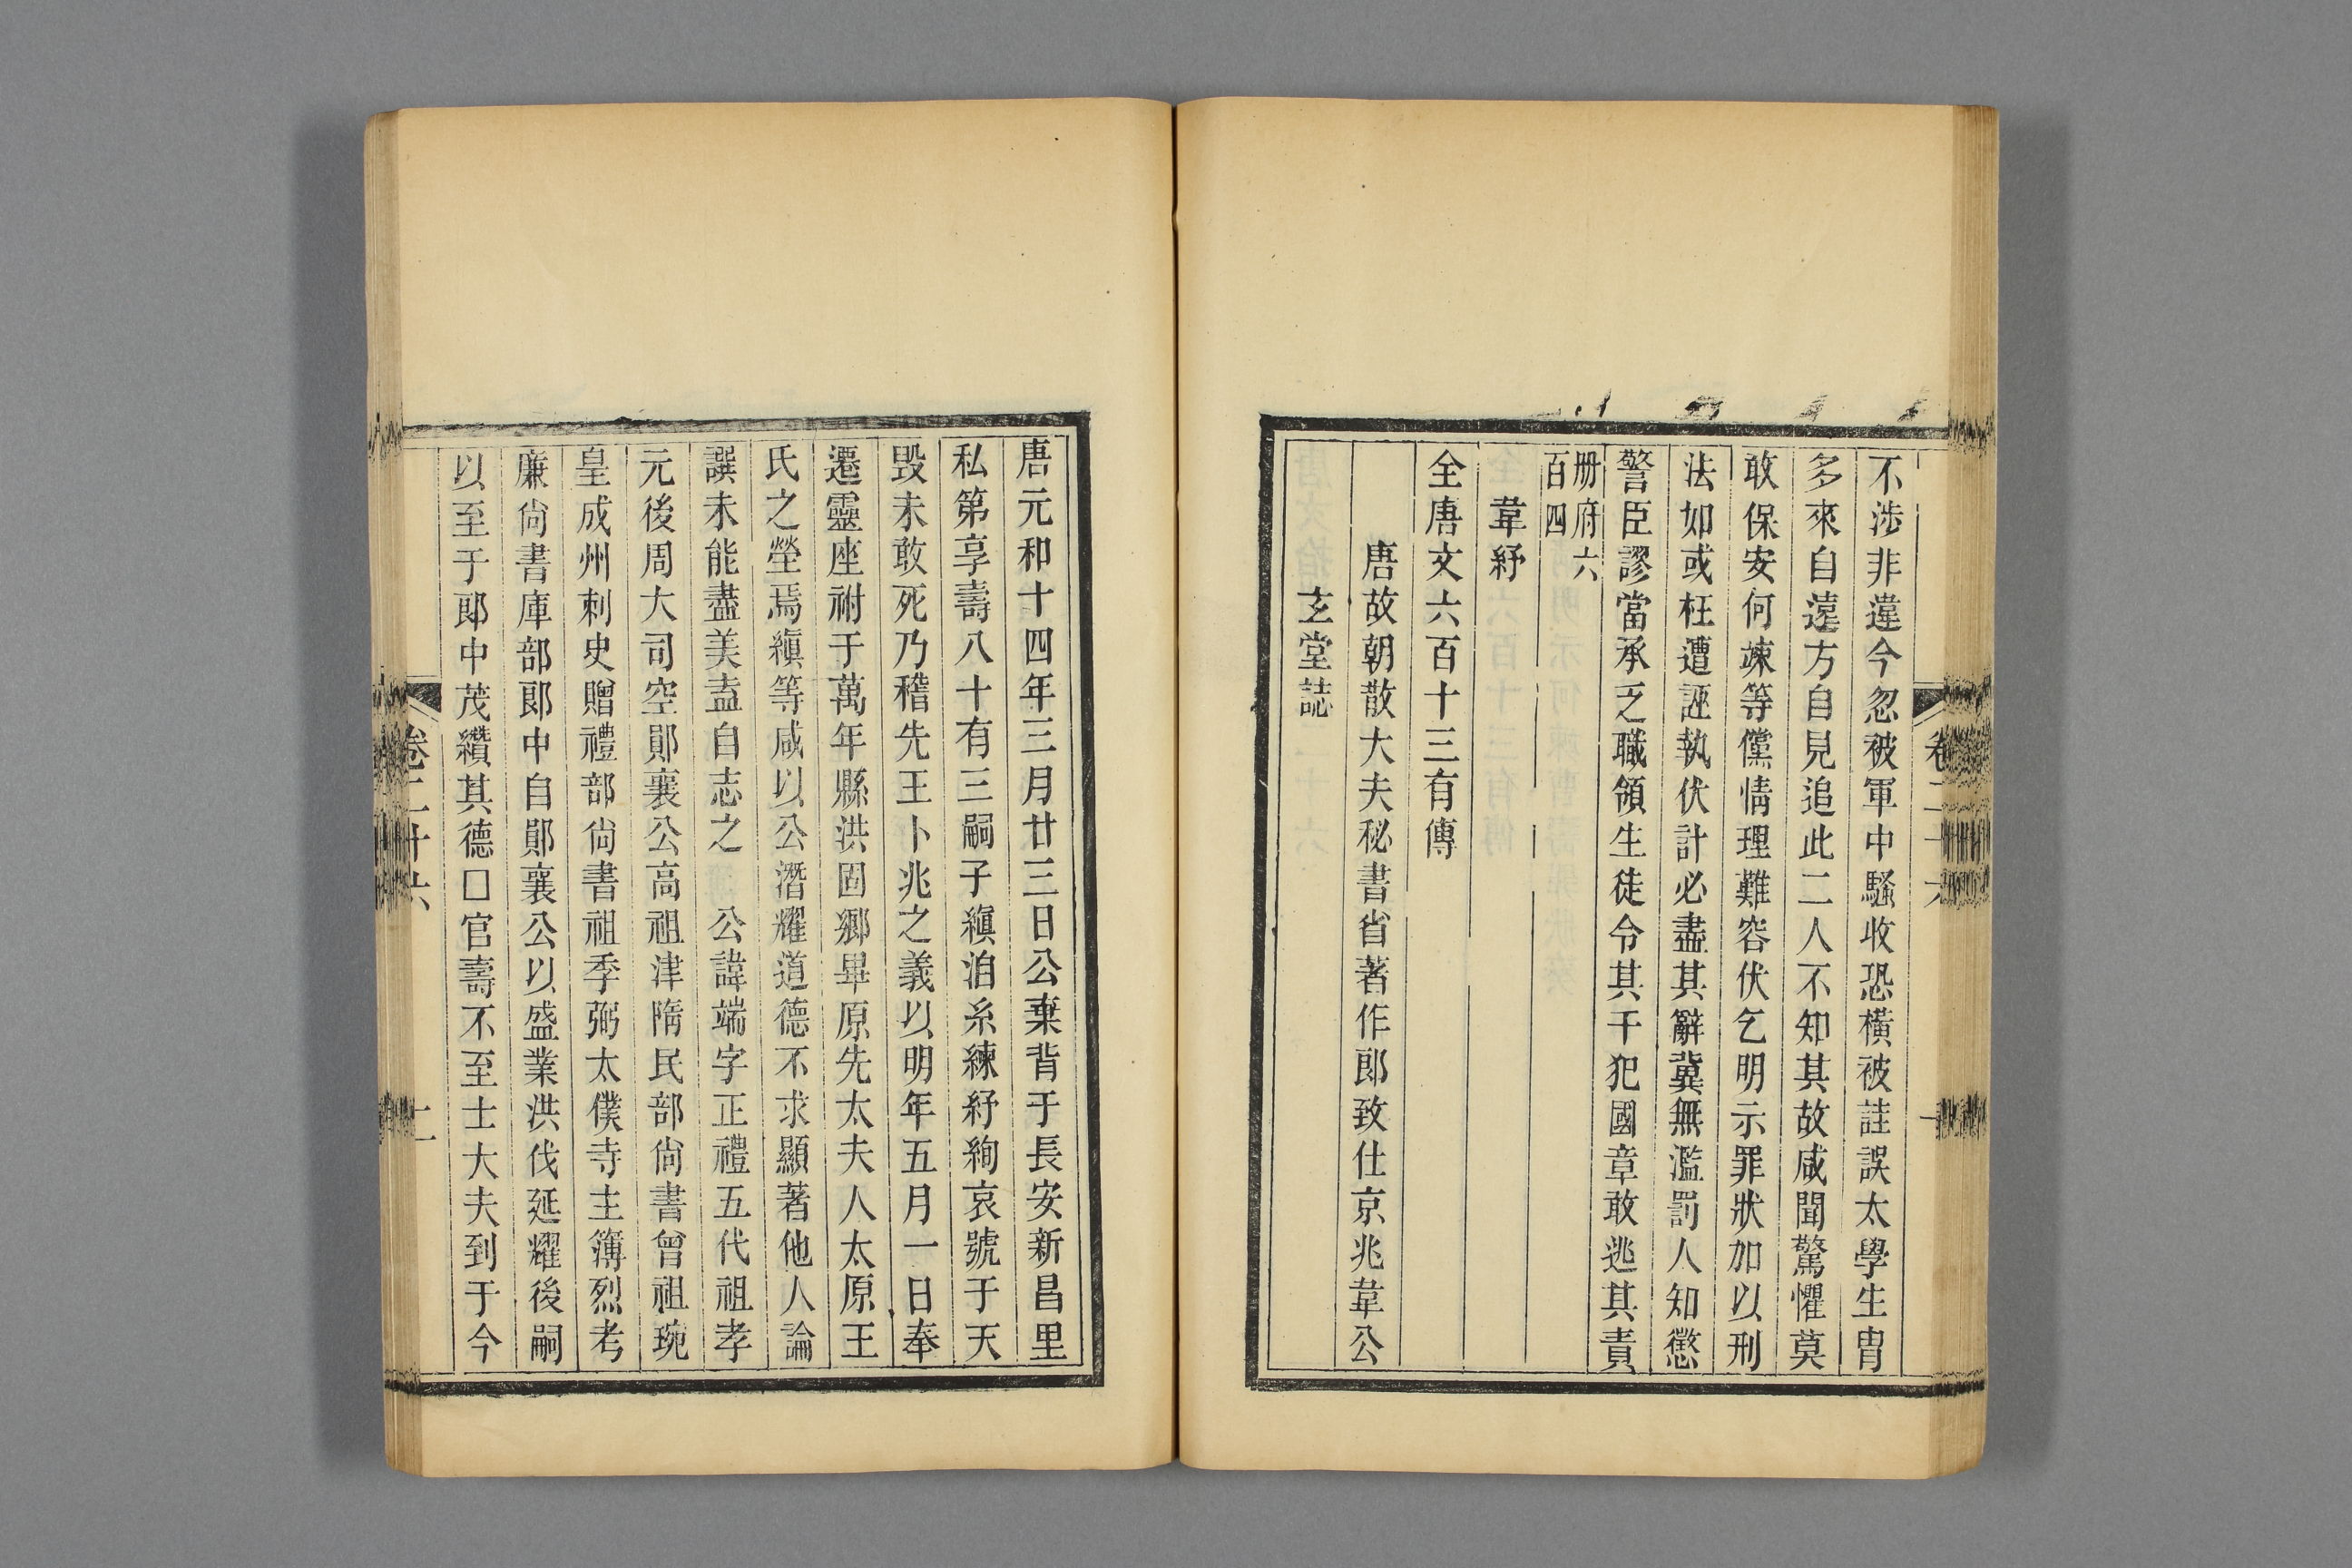 不涉非違今忽被軍中騷收恐橫被詿誤太學生冑
多來自遠方自見追此二人不知其故咸聞驚懼莫
敢保安何竦等儻情理難容伏乞明示罪狀加以刑
法如或枉遭誣執伏計必盡其辭冀無濫罰人知懲
警臣謬當承乏職領生徒令其干犯國章敢逃其責
册府六
百四
韋紓
全唐文六百十三有傳
唐故朝散大夫秘書省著作郎致仕京兆韋公
玄堂誌
唐元和十四年三月廿三日公棄背于長安新昌里
私第享壽八十有三嗣子縝洎糸練紓絢哀號于天
毀未敢死乃稽先王卜兆之義以明年五月一日奉
遷靈座祔于萬年縣洪固鄉畢原先太夫人太原王
氏之塋焉縝等咸以公潛耀道德不求顯著他人論
譔未能盡美盍自志之 公諱端字正禮五代祖孝
元後周大司空鄖襄公高祖津隋民部尙書曾祖琬
皇成州刺史贈禮部尙書祖季弼太僕寺主簿烈考
廉尙書庫部郎中自鄖襄公以盛業洪伐延耀後嗣
以至于郎中茂纘其德□官壽不至士大夫到于今
卷二十六